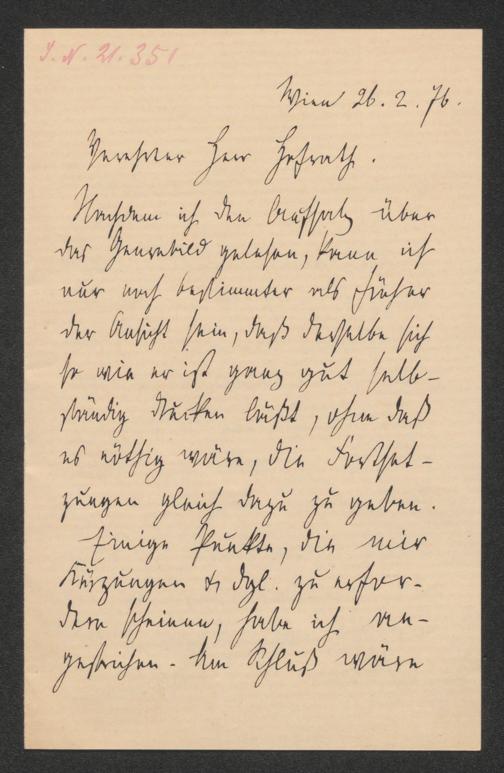 J. N. 21.351
Wien 26.2.76.
Verehrter Herr Hofrath.
Nachdem ich den Aufsatz über
das Genrebild gelesen, kann ich
nur noch bestimmter als früher
der Ansicht sein, daß derselbe sich
so wie er ist ganz gut selb-
ständig drucken läßt, ohne daß
es nöthig wäre, die Fortset-
zungen gleich dazu zu geben.
Einige Punkte, die mir
Kürzungen & dgl. zu erfor-
dern scheinen, habe ich an-
gestrichen. Am Schluß wäre